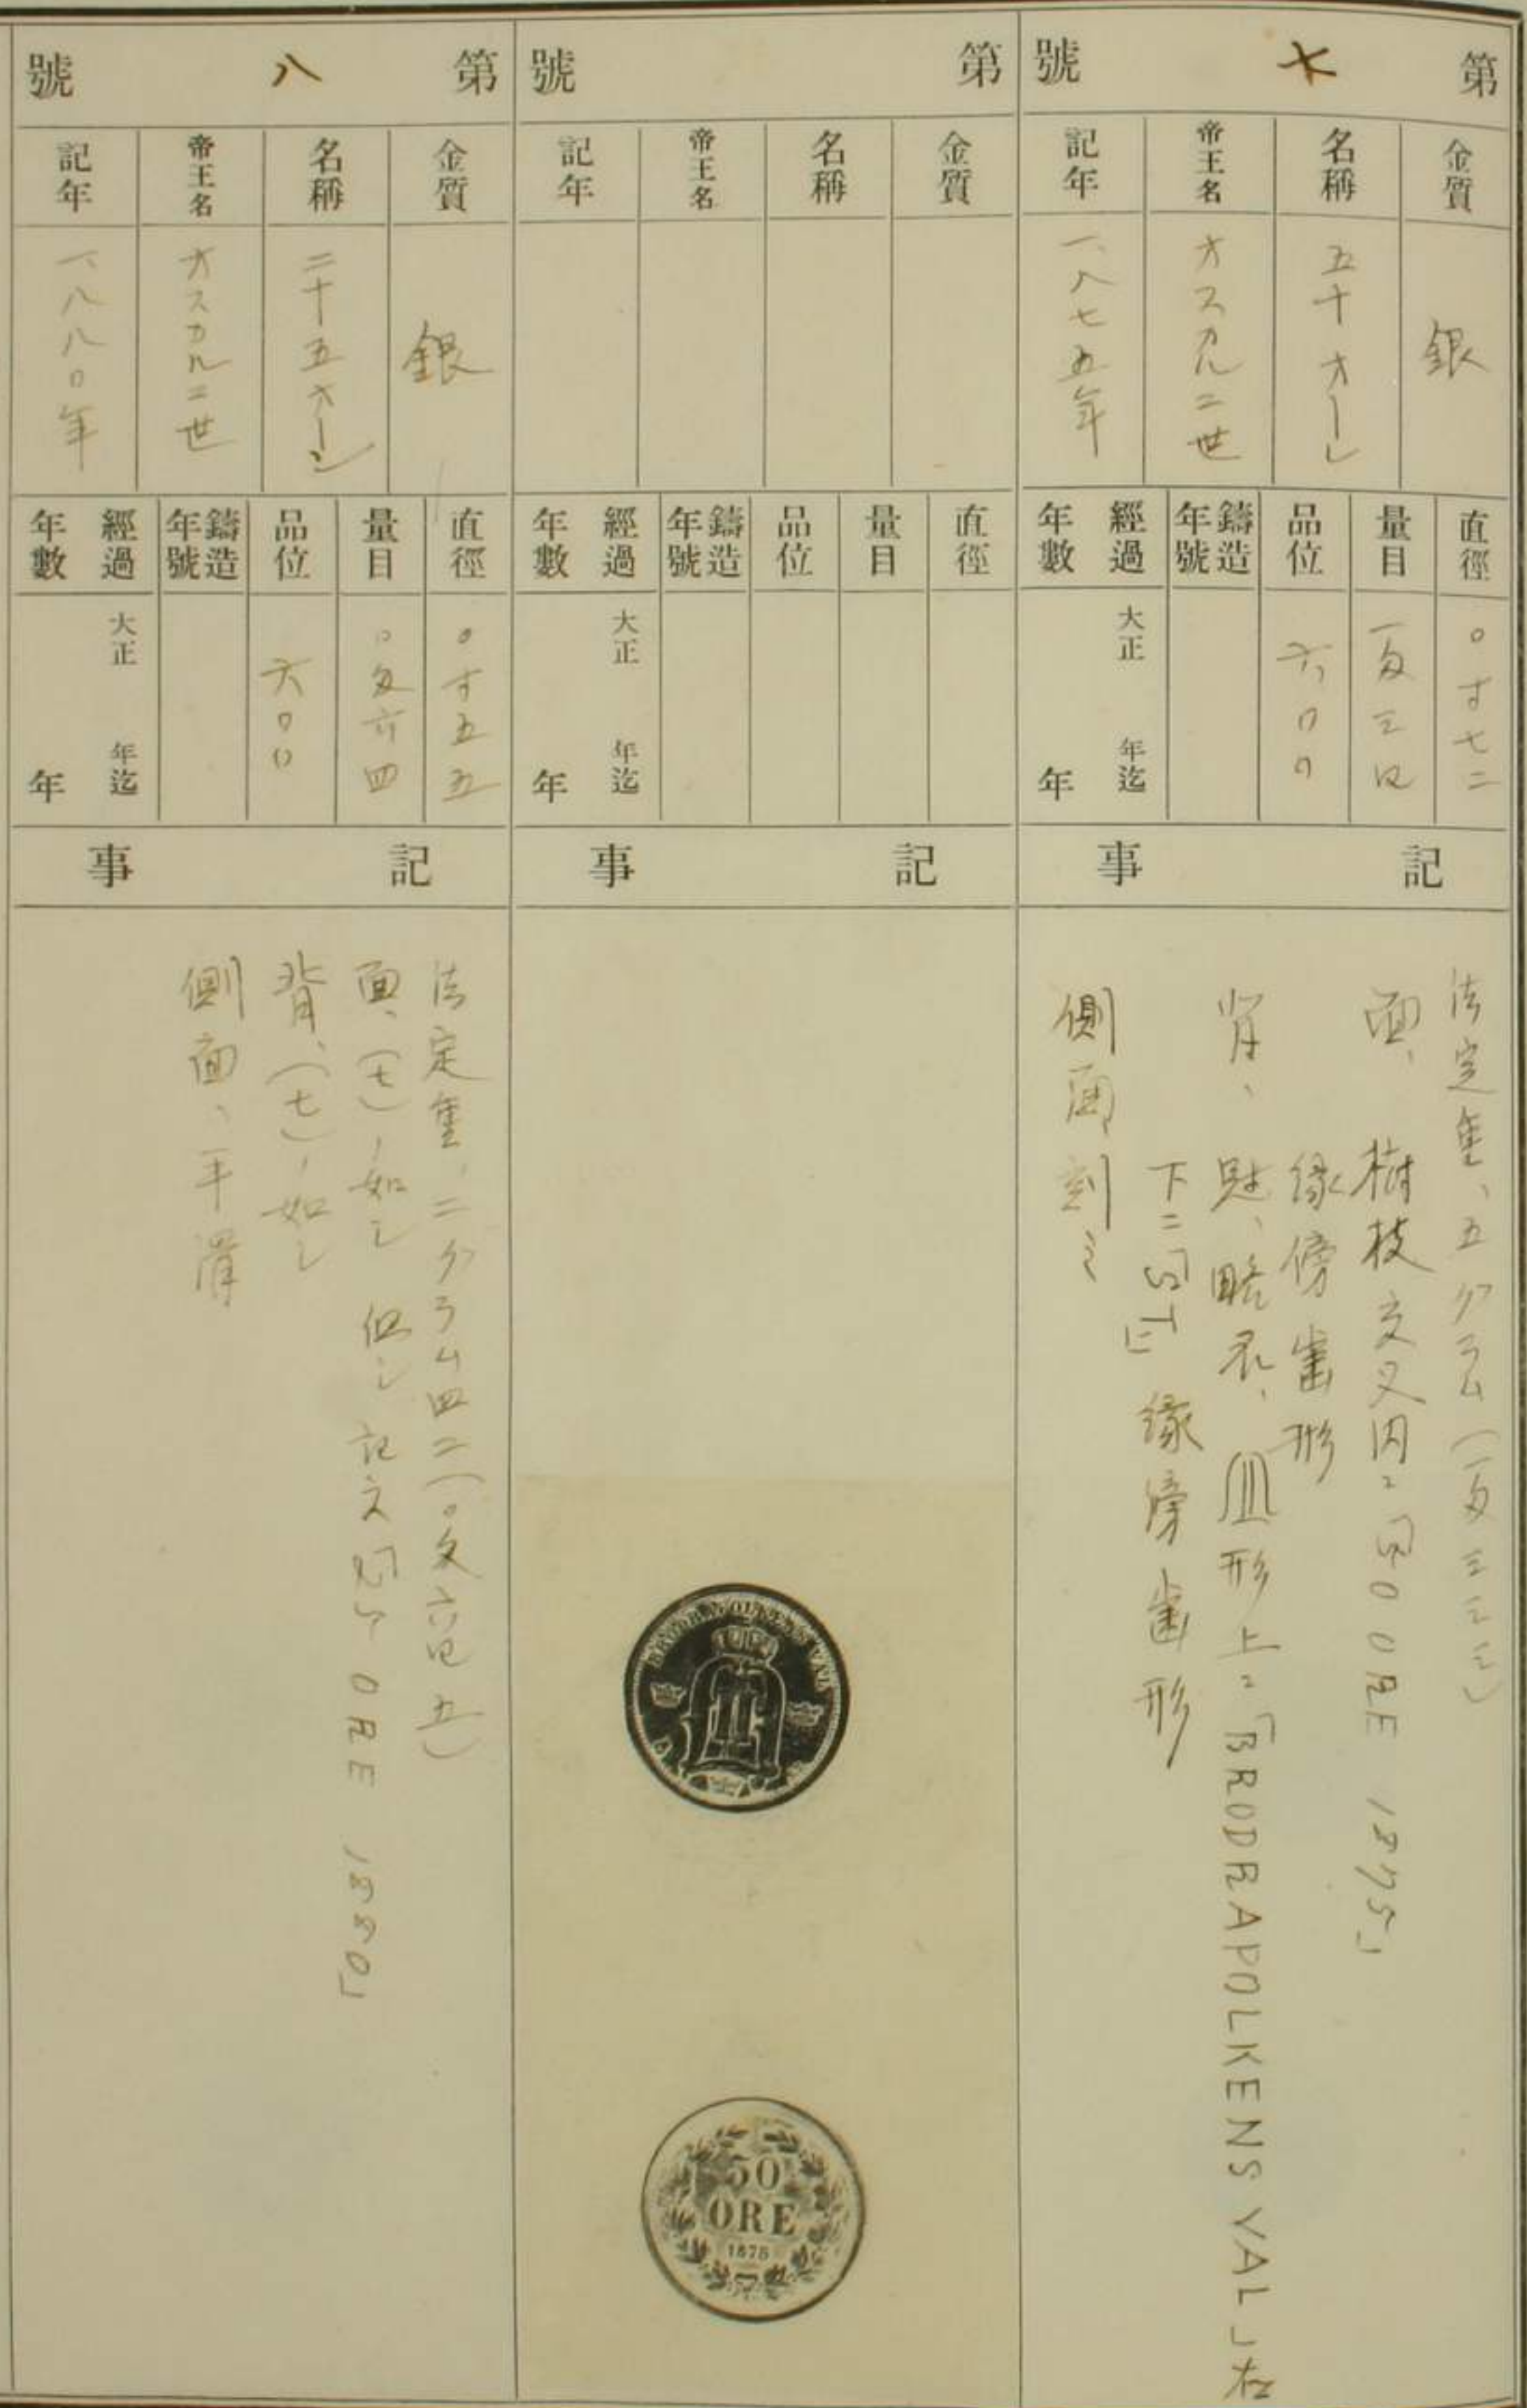 第七號
金質
銀
名稱
五十オーレ
帝王名
オスカル二世
記年
一、八七五年
直徑
〇寸七二
量目
品位
六〇〇
鑄造年號
經過年數
大正 年迄
年
記事
法定量、五グラム(一匁三三三)
面、樹枝交叉内ニ「50 ORE 1875」
緣傍歯形
背、
形上ニ「BRODRAFOLKENS VAL」左
下ニ「ST」緣傍歯形
側面、刻ミ
第 號
金質
名稱
帝王名
記年
直徑
量目
品位
鑄造年號
經過年數
大正 年迄
年
記事
BRODRAFOLKENS VAL
50
ORE
1875
第八號
金質
銀
名稱
二十五オーレ
帝王名
オスカル二世
記年
一、八八〇年
直徑
〇寸五五
量目
〇匁六四
品位
六〇〇
鑄造年號
經過年數
大正 年迄
年
記事
法定量、二グラム四二(〇匁六四五)
面、(七)ノ如シ 但シ記文「25 ORE 1880」
背、(七)ノ如シ
側面、平滑